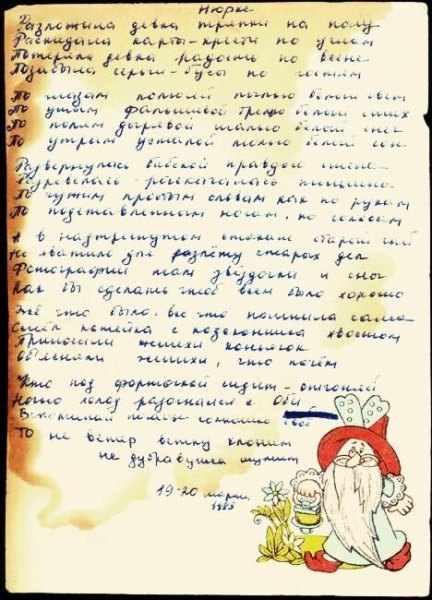 Нюрке
Разложила девка тряпки на полу
Раскидала карты-крести по углам
Потеряла девка радость по весне
Позабыла серьги-бусы по гостям
По глазам колючей пылью белый свет
По ушам фальшивой трелью белый стих
По полям дырявой шалью белый снег
По утрам усталой молью белый сон
Развернулась бабской правдою стена
Разревелась-раскачалась тишина
По чужим простым словам как по рукам
По подставленным ногам, по головам
А в надтреснутом стакане старый чай
Не хватило для разлёту старых дел
Фотографии там звёздочки и сны
Как бы сделать чтоб всем было хорошо
Всё что было, всё что помнила сама
Смёл котейка с подоконника хвостом
Приносили женихи коньячок
Объясняли женихи, что почём
Кто под форточкой сидит - отгоняй
Ночью холод разогнался с Оби
Вспоминай почаще солнышко своё
То не ветер ветку клонит
не дубравушка шумит
19-20 марта